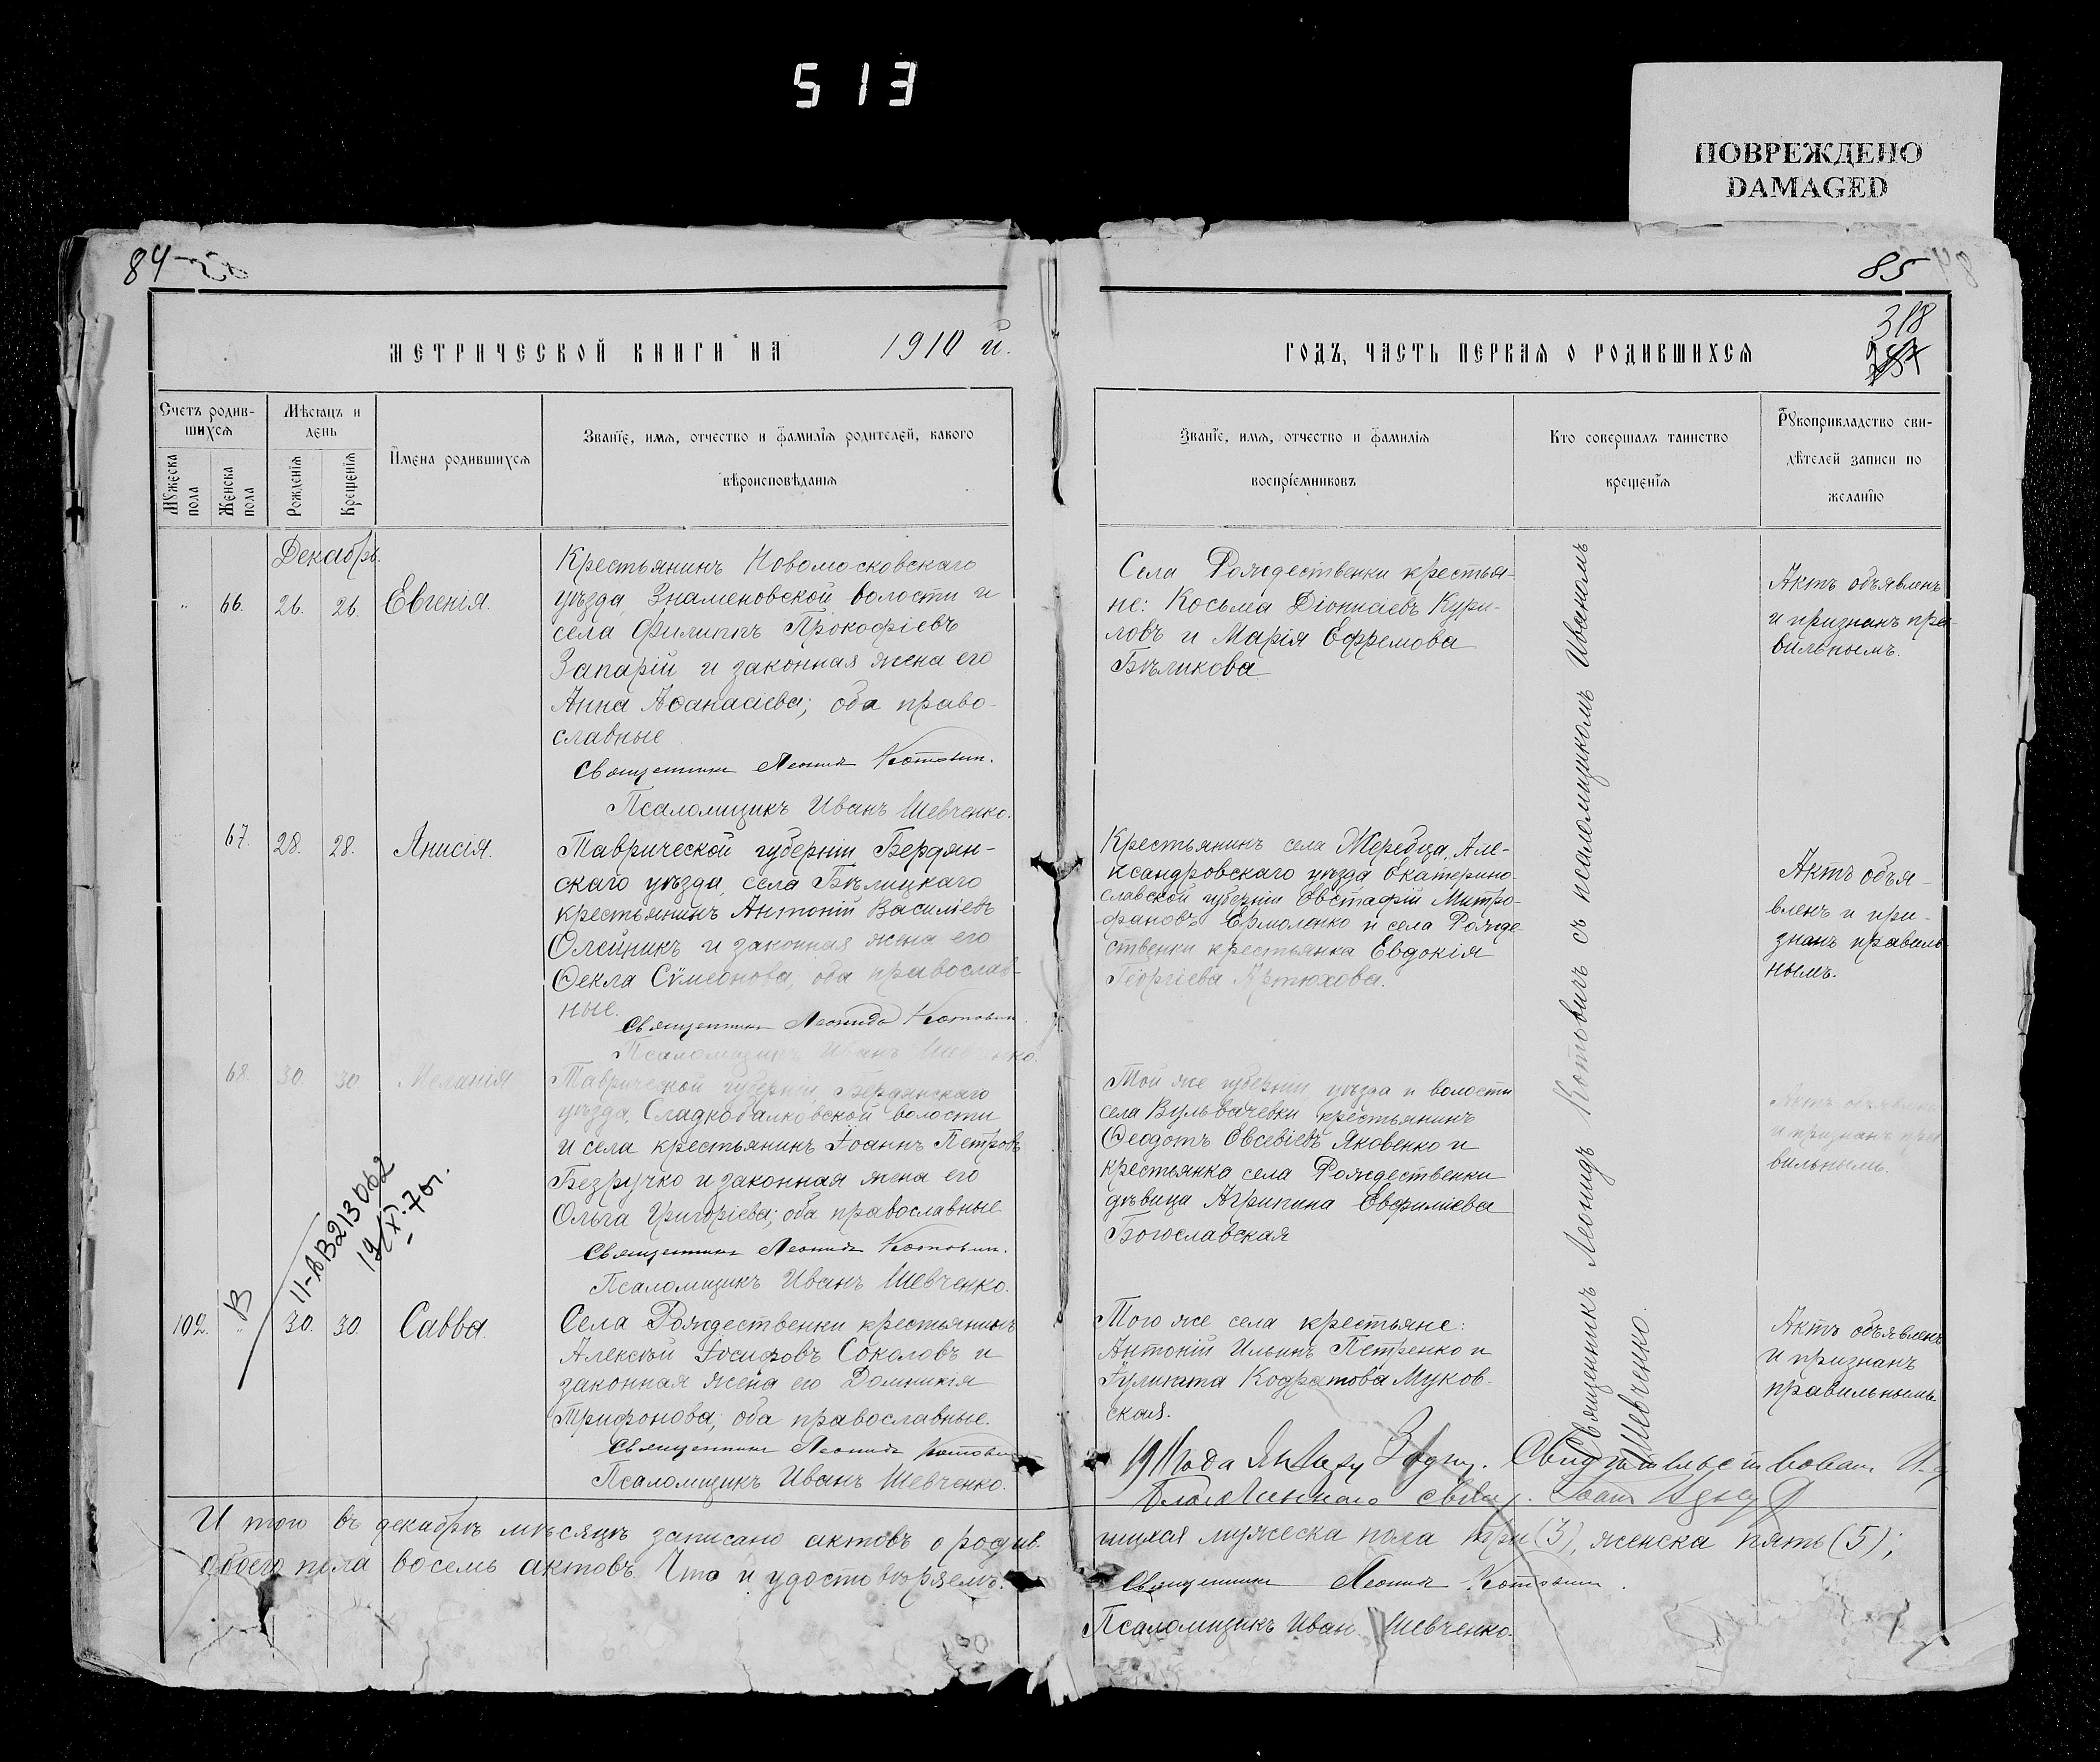 513
ПОВРЕЖДЕНО
DAMAGED
84
85
318
МЕТРИЧЕСКОЙ КНИГИ НА 1910 й.
ГОДЪ, ЧАСТЬ ПЕРВАЯ О РОДИВШИХСЯ
Счетъ родив-
шихся
Мѣсяцъ и
день
Мужеска
пола
Женска
пола
Рожденія
Крещенія
Имена родившихся
Званіе, имя, отчество и фамилія родителей, какого
вѣроисповѣданія
Званіе, имя, отчество и фамилія
воспріемниковъ
Кто совершалъ таинство
крещенія
Рукоприкладство сви-
дѣтелей записи по
желанію
Декабрь.
„ 66. 26. 26. Евгенія.
Крестьянинъ Новомосковскаго
уѣзда, Знаменовской волости и
села Филиппъ Прокофіевъ
Запарій и законная жена его
Анна Аѳанасіева; оба право-
славные
Священникъ Леонидъ Котович.
Псаломщикъ Иванъ Шевченко.
Села Рождественки крестья-
не: Косьма Діонисіевъ Кури-
ловъ и Марія Ефремова
Бѣликова
Актъ объявленъ
и признанъ пра-
вильнымъ.
67. 28. 28. Анисія.
Таврической губерніи Бердян-
скаго уѣзда, села Бѣлицкаго
крестьянинъ Антоній Василіевъ
Олейникъ и законная жена его
Ѳекла Сѵмеонова, оба православ-
ные.
Священникъ Леонидъ Котович
Псаломщикъ Иванъ Шевченко.
Крестьянинъ села Жеребца, Але-
ксандровскаго уѣзда Екатерино-
славской губерніи Евстафій Митро-
фановъ Ермоленко и села Рожде-
ственки крестьянка Евдокія
Георгіева Артюхова.
Актъ объя-
вленъ и при-
знанъ правиль-
нымъ.
68 30. 30 Меланія
Таврической губерніи, Бердянскаго
уѣзда, Сладкобалковской волости
и села крестьянинъ Іоаннъ Петровъ
Безручко и законная жена его
Ольга Григоріева; оба православные
Священникъ Леонидъ Котович.
Псаломщикъ Иванъ Шевченко.
Той же губерніи, уѣзда и волости
села Вульвачевки крестьянинъ
Ѳеодотъ Евсевіевъ Яковенко и
крестьянка села Рождественки
дѣвица Агрипина Евфиміева
Богославская
Актъ объявленъ
и признанъ пра-
вильнымъ.
11-АВ213062
19/XI-70г.
В
102. „ 30. 30 Савва.
Села Рождественки крестьянинъ
Алексѣй Іосифовъ Соколовъ и
законная жена его Домникія
Трифонова; оба православные.
Священникъ Леонидъ Котович
Псаломщикъ Иванъ Шевченко.
Того же села крестьяне:
Антоній Ильинъ Петренко и
Іулитта Кодратова Муков-
ская.
Актъ объявленъ
и признанъ
правильнымъ
Священникъ Леонидъ Котовичъ съ псаломщикомъ Иваномъ
Шевченко.
1911 года Свидѣтельствовалъ И. д.
Благочиннаго свящ.
Итого въ декабрѣ мѣсяцѣ записано актовъ о родив-
шихся мужеска пола три (3), женска пять (5);
обоего пола восемь актовъ. Что и удостовѣряемъ:
Священникъ Леонидъ Котович.
Псаломщикъ Иван Шевченко.